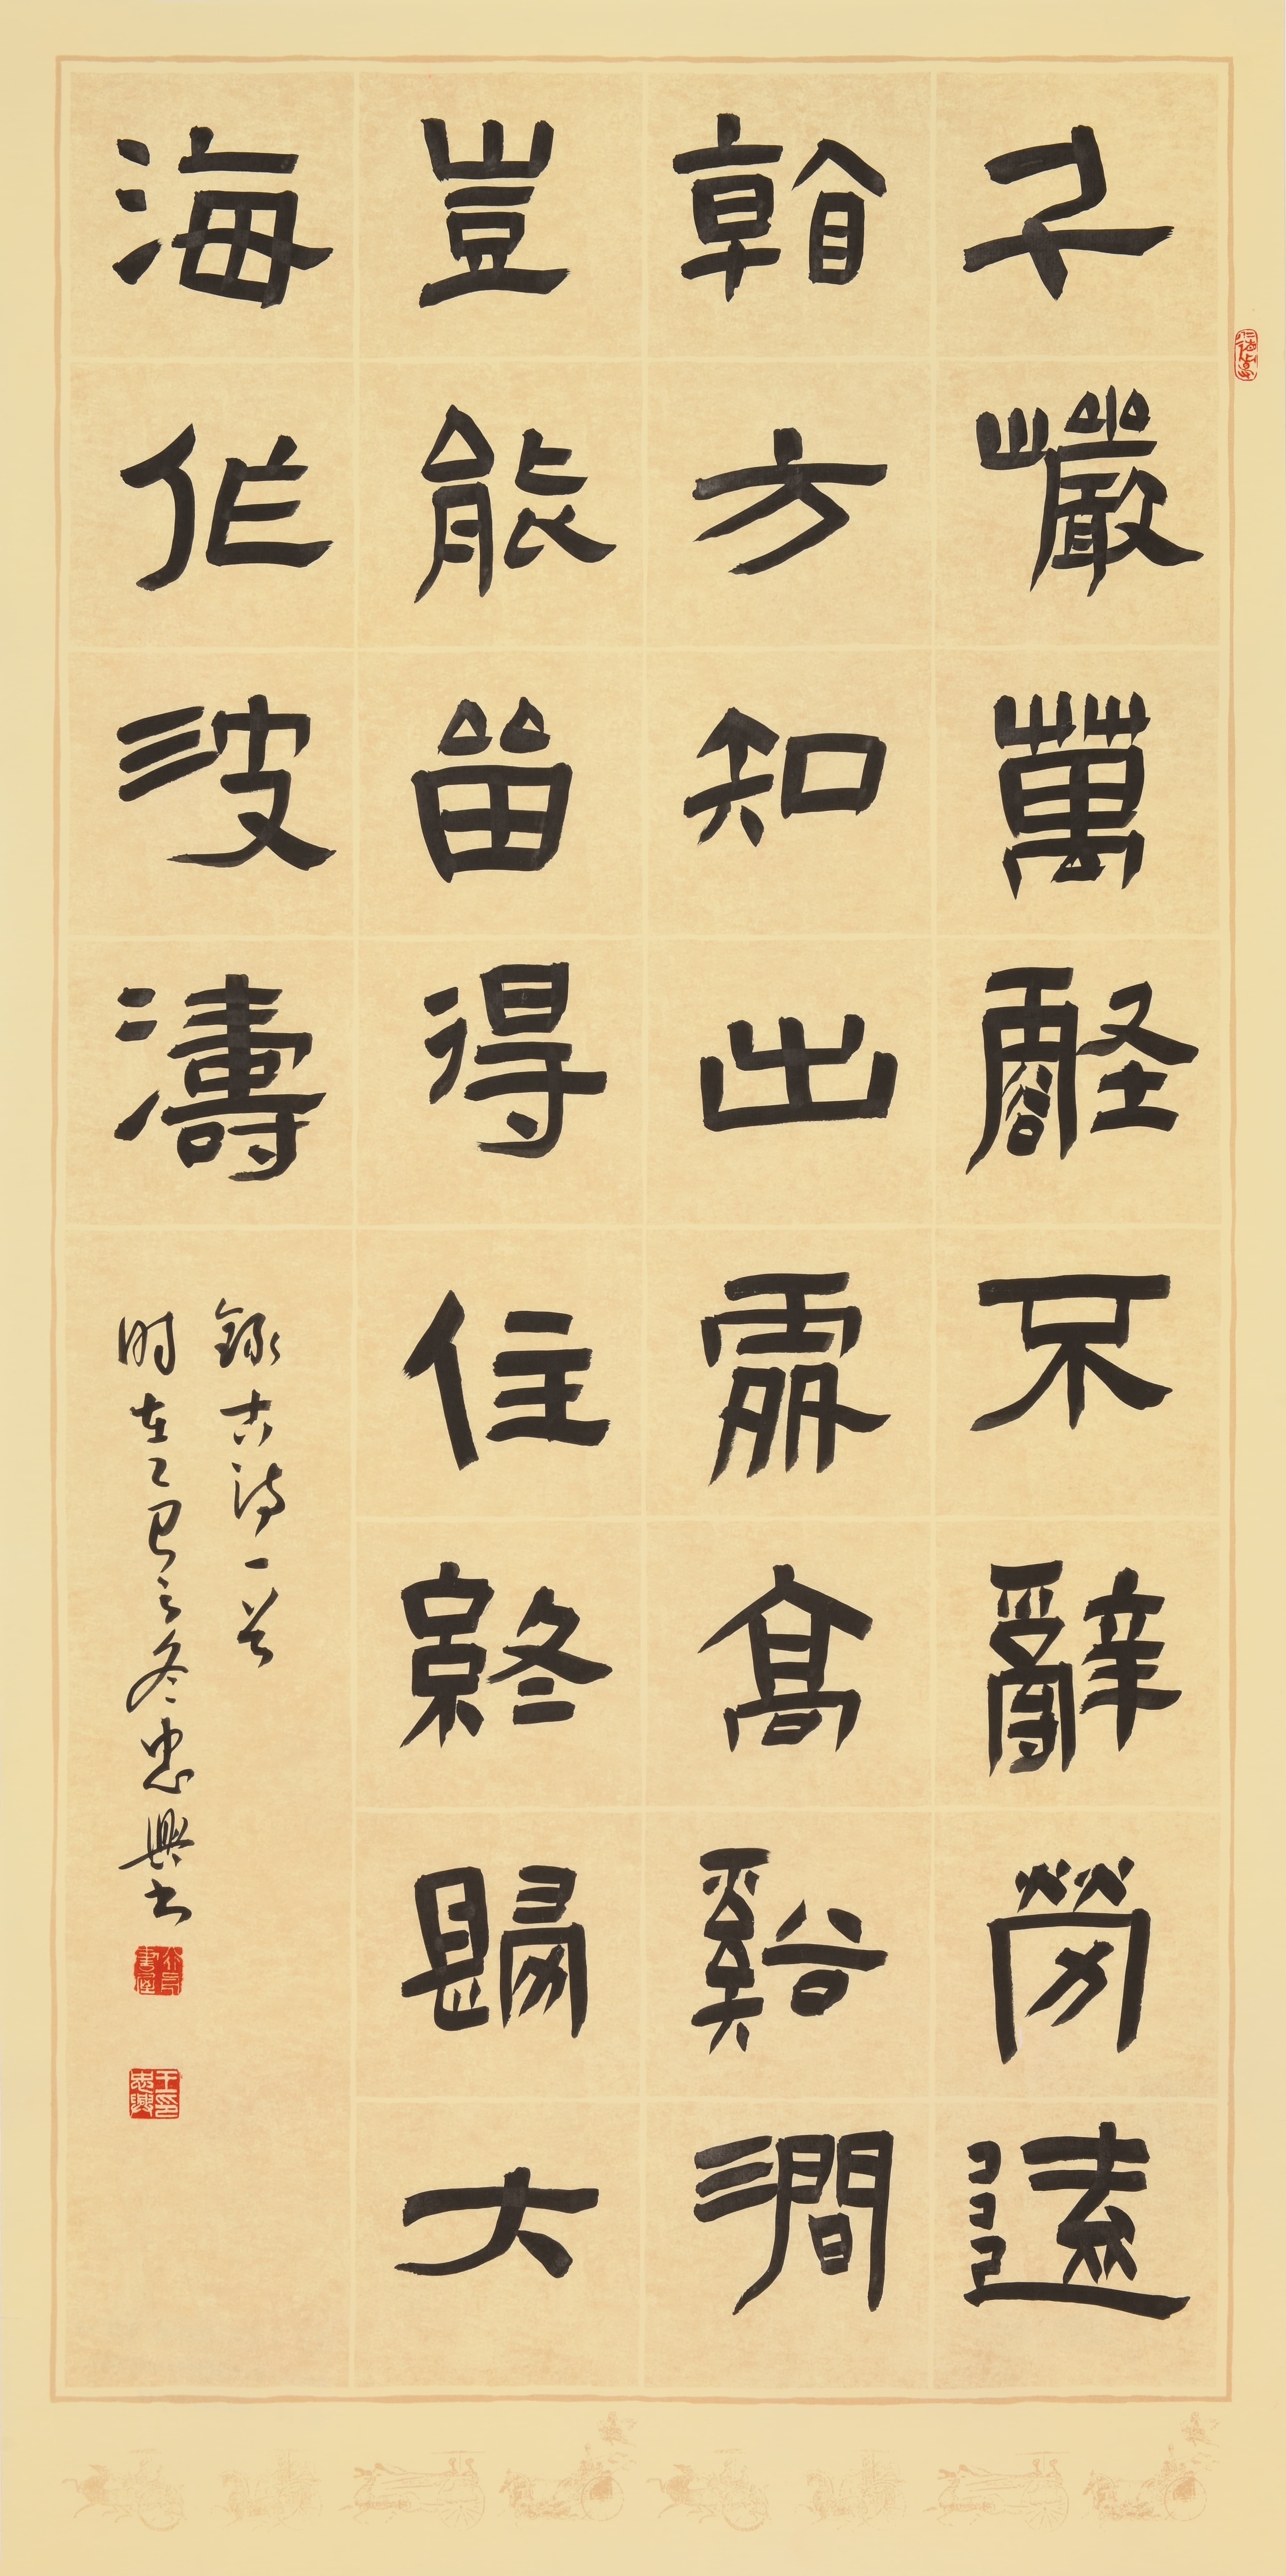 千巖萬壑不辭勞遠
看方知出處高谿澗
豈能留得住終歸大
海作波濤
錄古詩一首
时在乙巳之冬忠興书
王印忠興